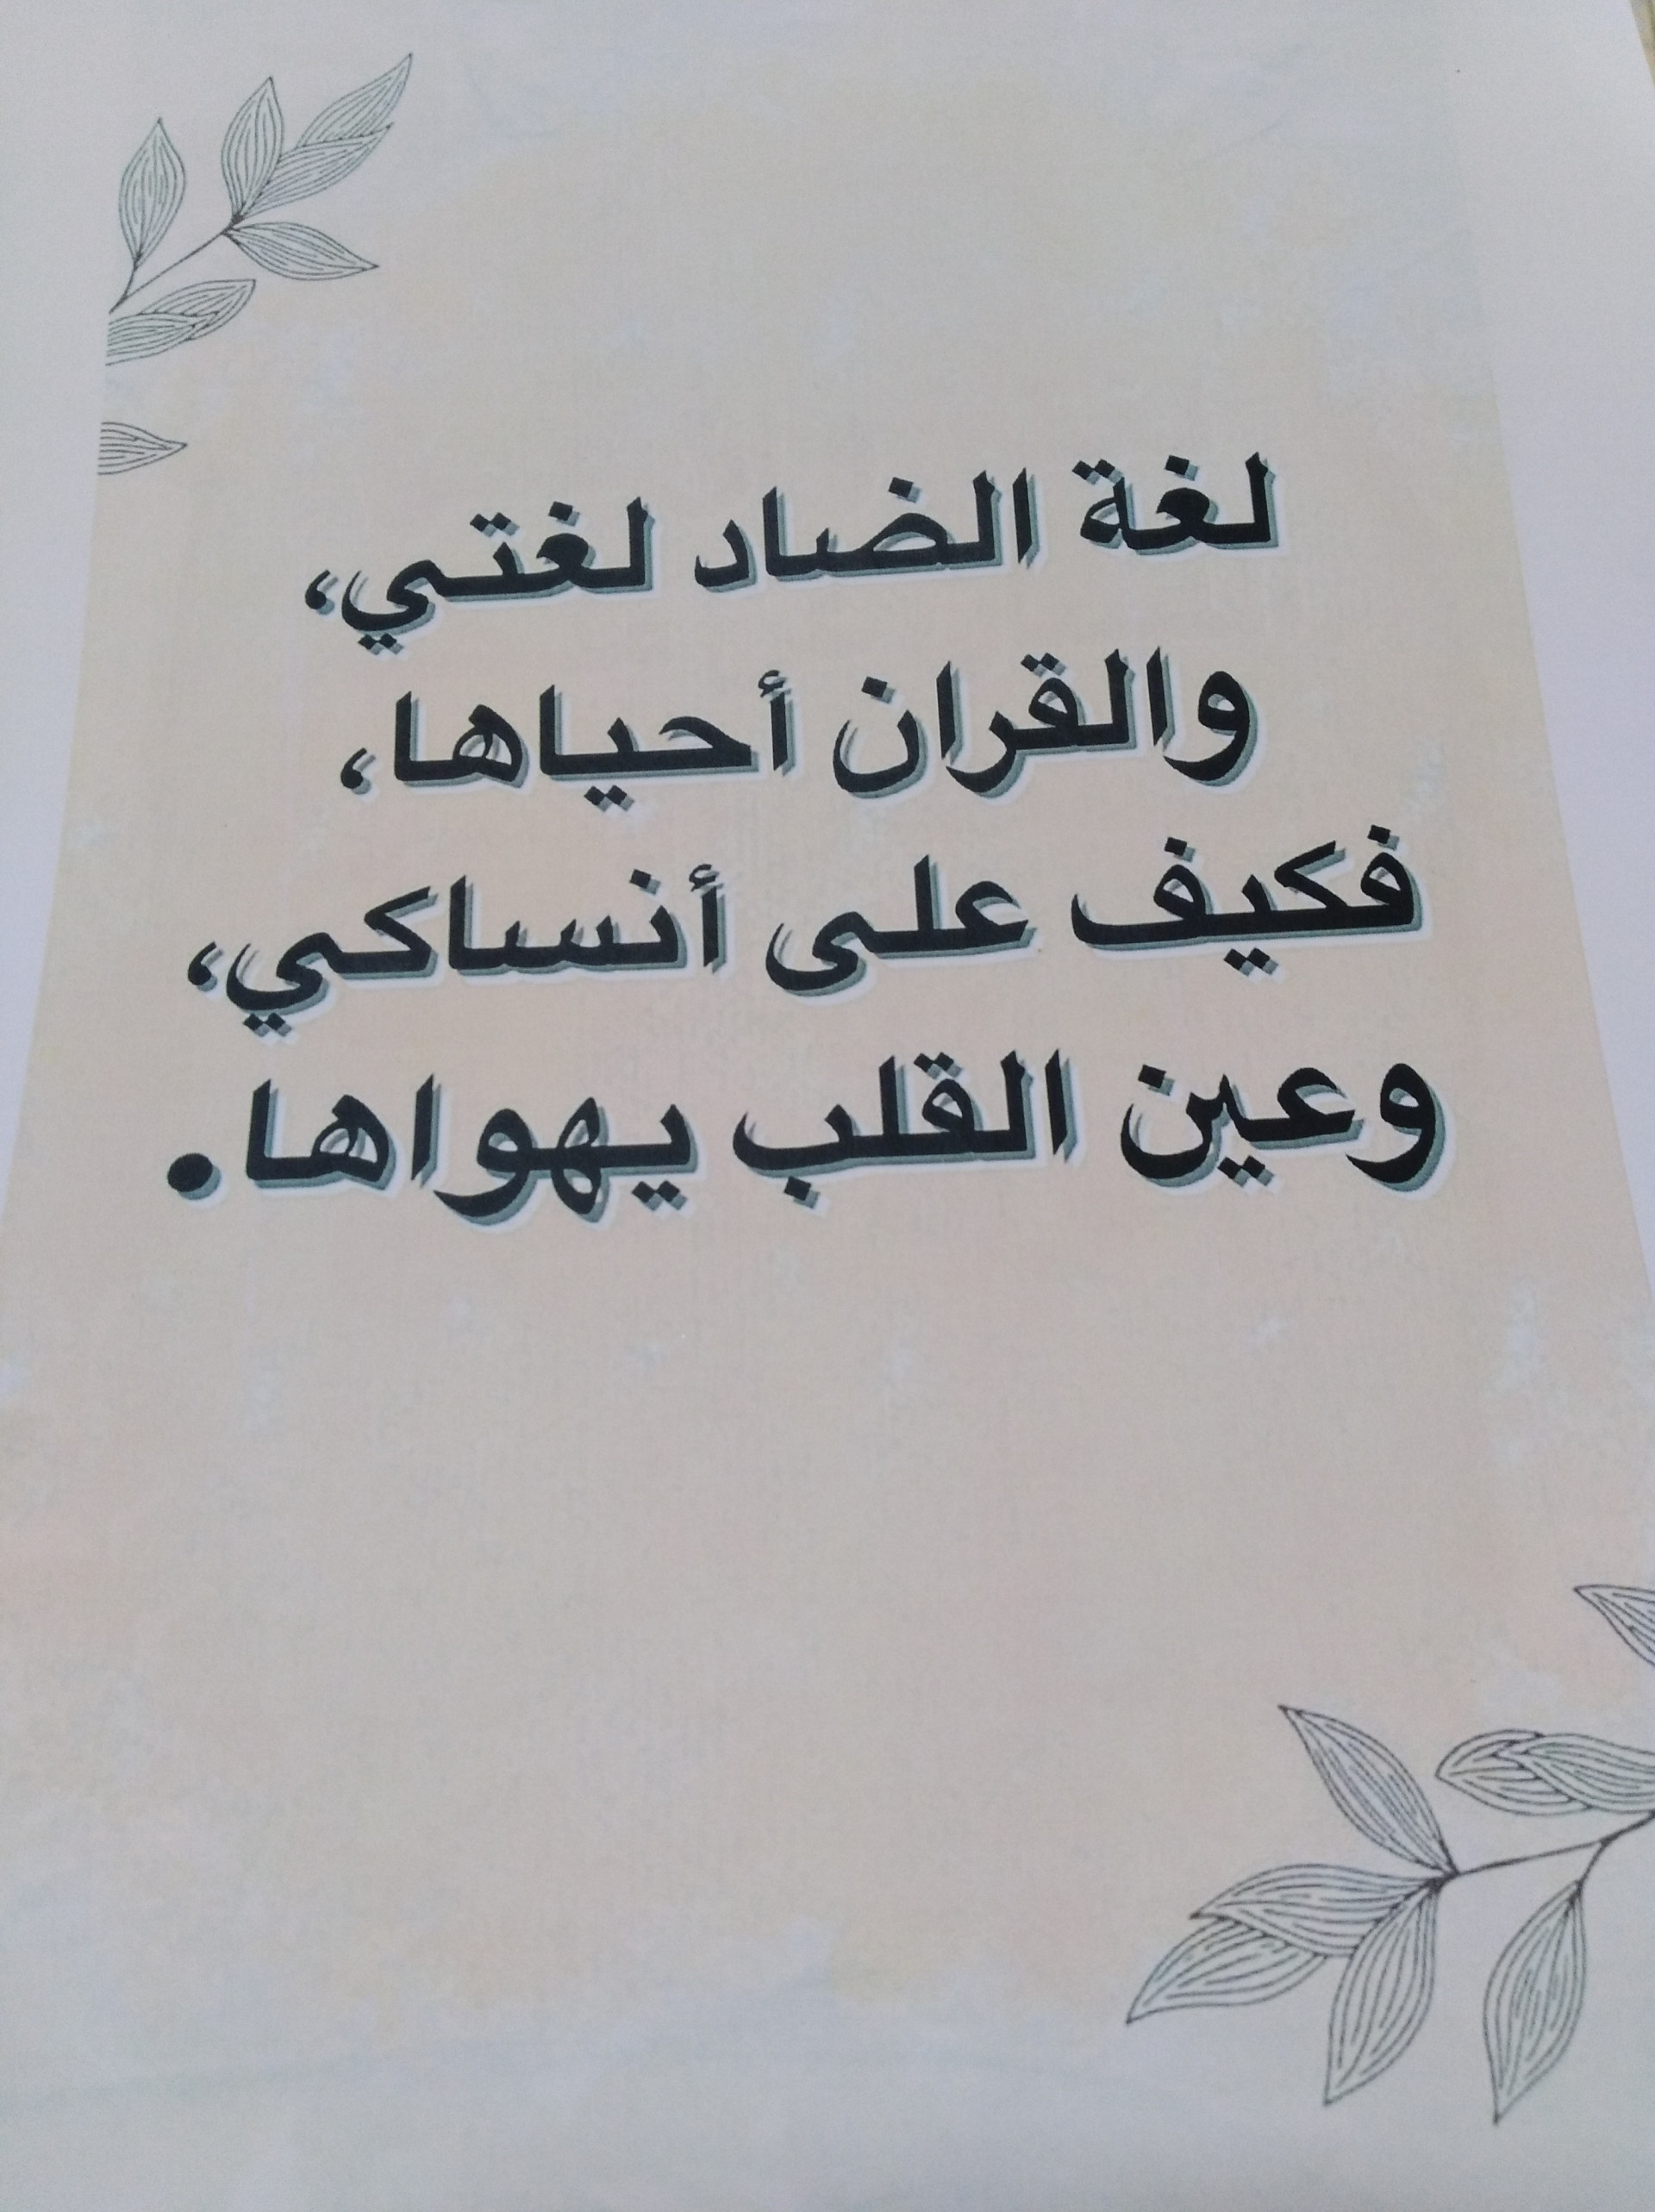 لغة الضاد لغتي،
والقران أحياها،
فكيف على أنساكي،
وعين القلب يهواها.